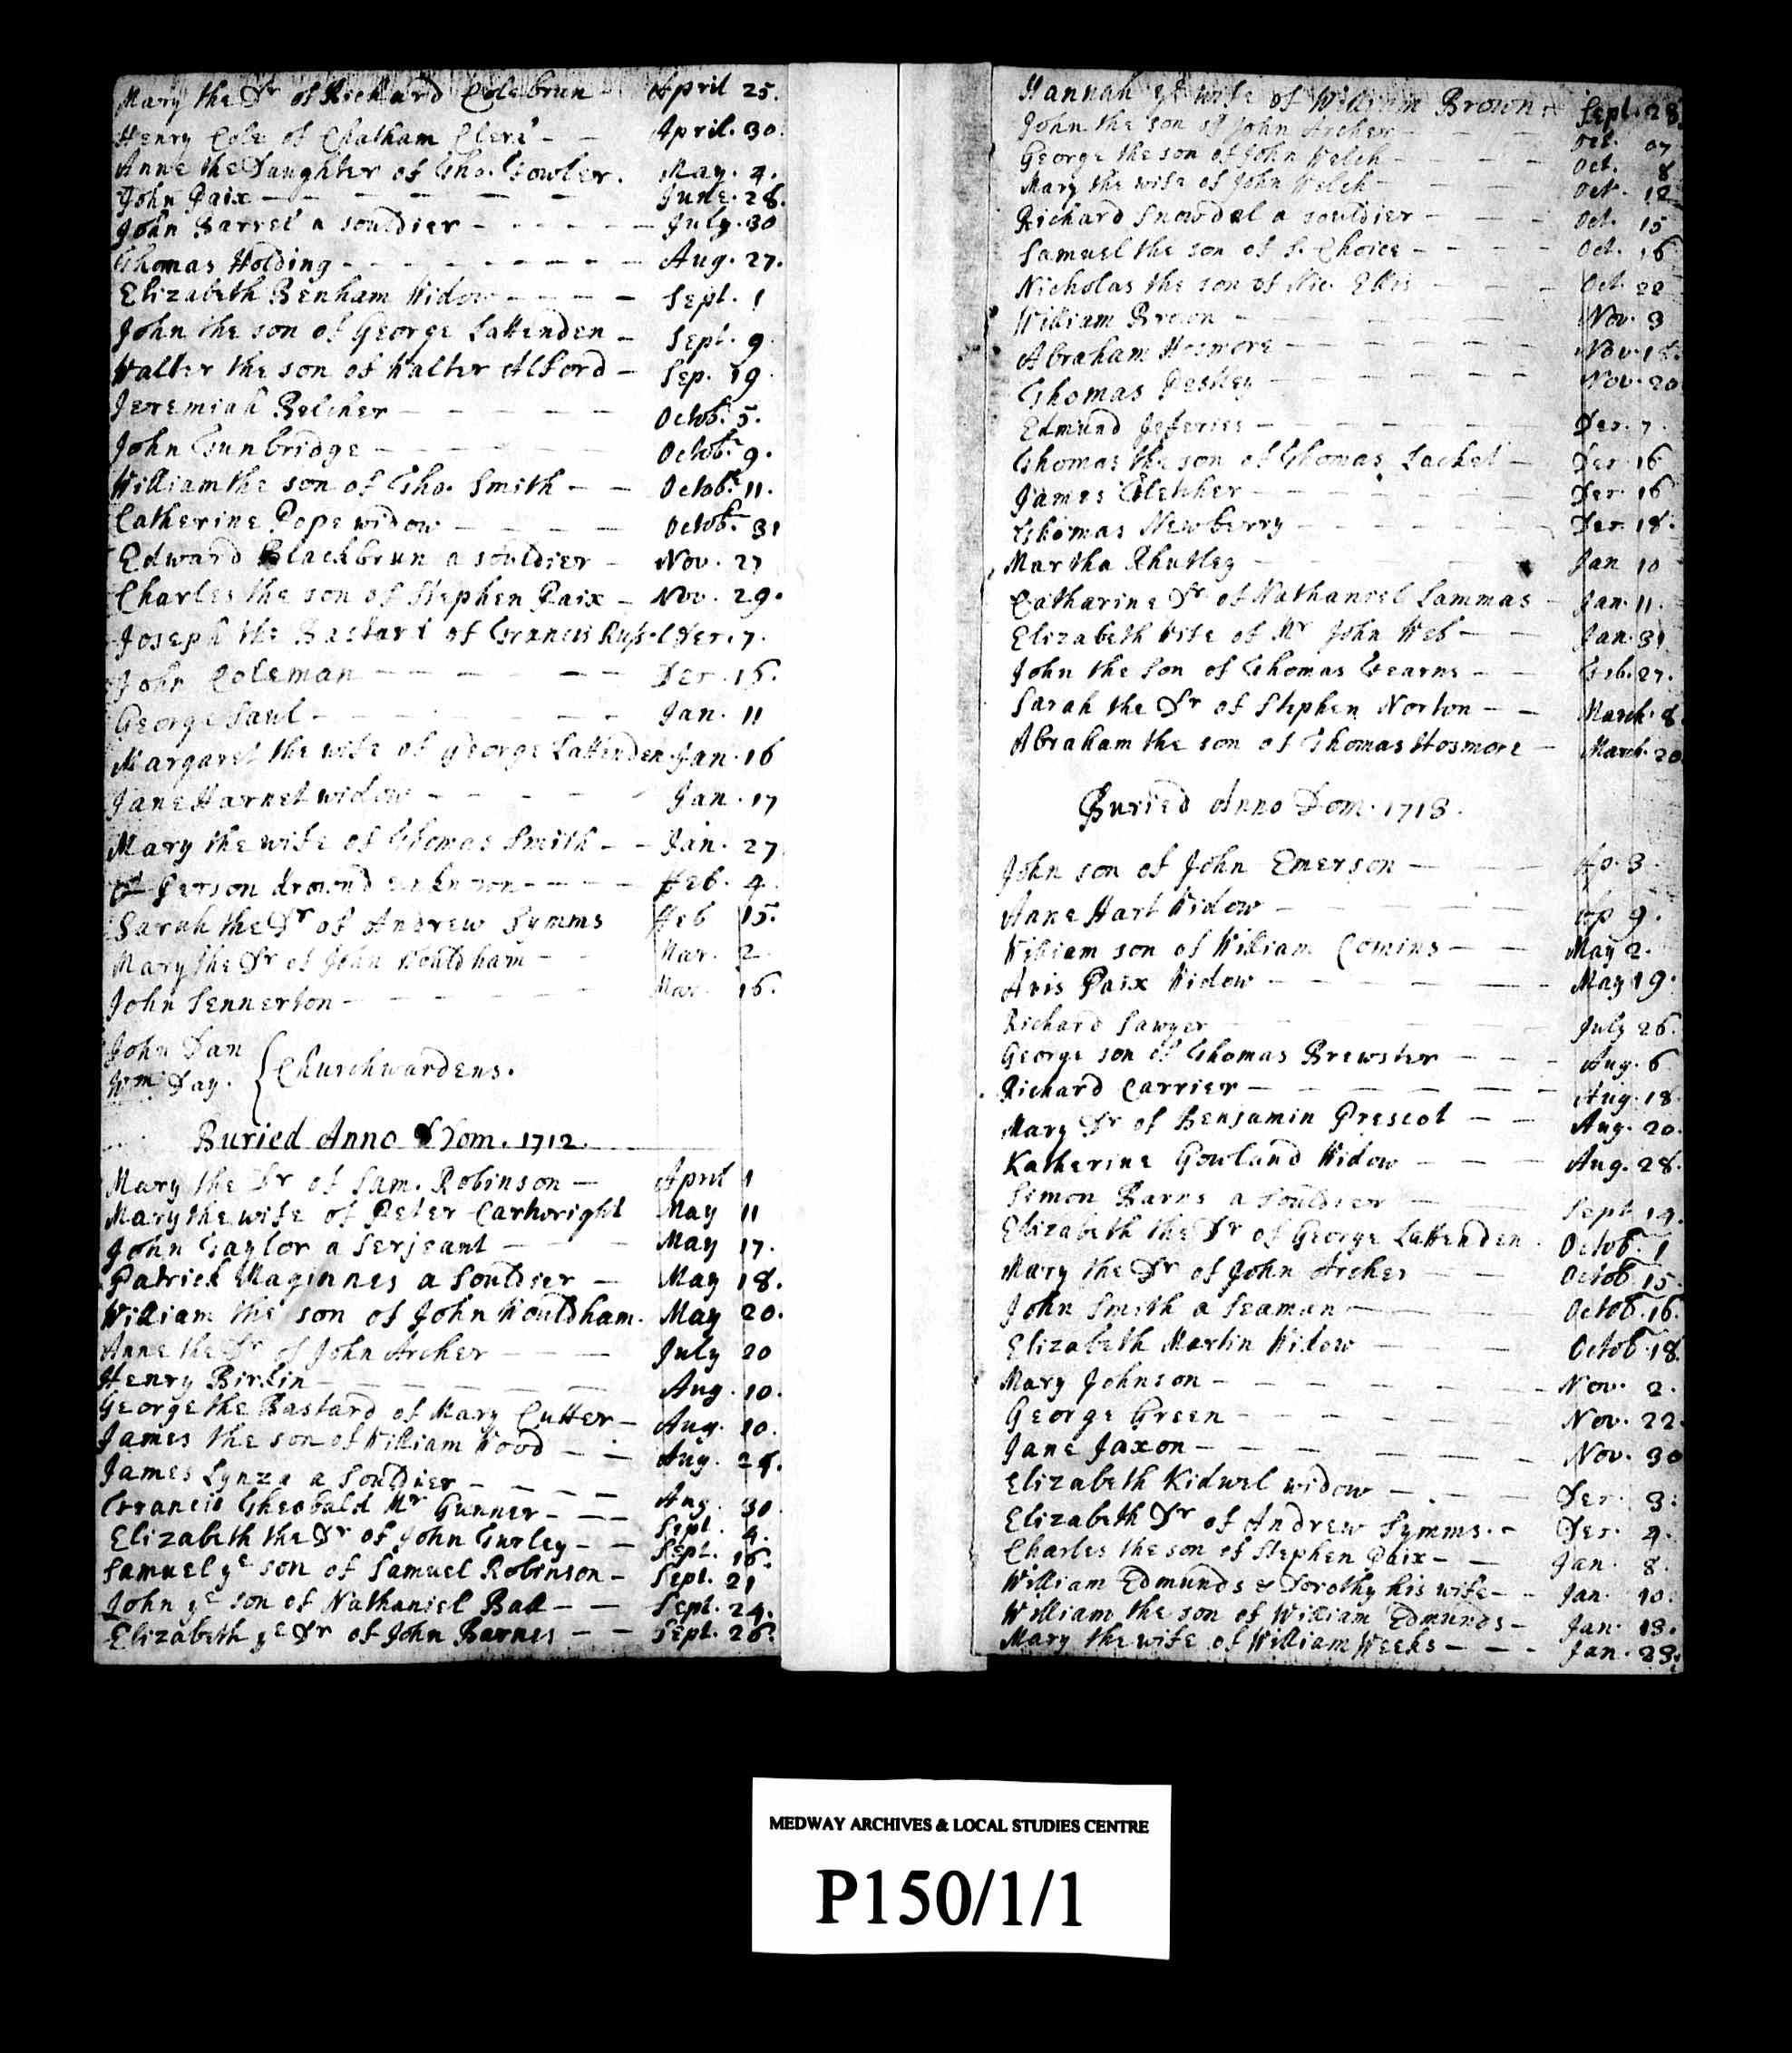 Mary the Dr of Richard Colebrun April 25.
Henry Cole of Chatham Clerk — — April. 30.
Anne the Daughter of Tho. Fowler. May. 4.
John Paix — — — — — June. 28.
John Barrel a souldier - - - - - - July. 30
Thomas Holding - - - - - - - - - Aug. 27.
Elizabeth Benham Widow - - - - Sept. 1
John the son of George Lattenden - Sept. 9
Walter the son of Walter Alford - Sep. 19
Jeremiah Belcher — — — — — Octobr. 5.
John Tunbridge — — — — — Octobr. 9.
William the son of Tho. Smith - - Octobr. 11.
Catherine Pope widow — — — — Octobr. 31
Edward Blackbrun a souldier - Nov. 27
Charles the son of Stephen Paix - Nov. 29.
Joseph the Bastard of Francis Russel Der. 7.
John Coleman — — — — — Der. 15.
George Saul - - - - - - - Jan. 11
Margaret the wife of George Lattenden. Jan. 16
Jane Harnet widow - - - - - Jan. 17
Mary the wife of Thomas Smith - - Jan. 27
Person drownd unknown - - - - Feb. 4.
Sarah the Dr of Andrew Symms Feb 15.
Mary the Dr of John Wouldham - - Mar. 2
John Sennerton - - - - - - Mar. 16.
John Dan
Wm Day. { Churchwardens.
Buried Anno Dom. 1712.
Mary the Dr of Sam. Robinson — April 1
Mary the wife of Peter Cartwright May 11
John Taylor a Serjeant — — — May 17.
Patrick Maginnes a Souldier — May 18.
William the son of John Wouldham. May 20.
Anne the Dr of John Archer — — — July 20
Henry Birkin — — — — — — Aug. 10.
George the Bastard of Mary Cutter — Aug. 10.
James the son of William Wood — — Aug. 24.
James Lynza a Souldier — — — — Aug. 30.
Francis Theobald Mr Gunner - - - Sept. 4.
Elizabeth the Dr of John Turley - - Sept. 16.
Samuel ye son of Samuel Robinson - Sept. 21
John ye son of Nathaniel Ball - - Sept. 24.
Elizabeth ye Dr of John Barnes - - Sept. 26.
Hannah ye wife of William Brown - Sept. 28.
John the son of John Archer - - - Oct. 07
George the son of John Welch - - - Oct. 8
Mary the wife of John Welch - Oct. 12
Richard Snowdel a souldier - - - Oct. 15
Samuel the son of S. Choice - - - - Oct. 16
Nicholas the son of Nic. Ellis - - - Oct. 22
William Brown - - - - - - Nov. 3
Abraham Hosmore - - - - - - Nov. 18.
Thomas - - - - - - Nov. 20
Edmund Jeferies - - - - - - Der. 7.
Thomas the son of Thomas Lacket - Der. 16
James Fletcher - - - - - - - Der. 16
Thomas Newberry - - - - - - Der. 18.
Martha Rhutley - - - Jan 10
Catharine Dr of Nathaniel Lammas - Jan. 11.
Elizabeth Wife of Mr John Web - - Jan. 31
John the Son of Thomas Fearns - - Feb. 27.
Sarah the Dr of Stephen Norton - - March. 8.
Abraham the son of Thomas Hosmore - March. 20
Buried Anno Dom. 1713.
John son of John Emerson — — Ap. 3.
Anne Hart Widow — — — — — Ap 9.
William son of William Comins — — May 2.
Avis Paix Widow - - - - - - May 19.
Richard Sawyer - - - - July 26.
George son of Thomas Brewster - - - Aug. 6
Richard Carrier - - - - - - - Aug. 18.
Mary Dr of Benjamin Prescot - - Aug. 20.
Katherine Gowland Widow - - - Aug. 28.
Simon Barns a Souldier — — Sept 14.
Elizabeth the Dr of George Lattenden. Octobr. 1
Mary the Dr of John Archer — — Octobr 15.
John Smith a Seaman — — — — Octobr. 16.
Elizabeth Martin Widow — — — Octobr. 18.
Mary Johnson - - - - - - - Nov. 2.
George Green - - - - - - - Nov. 22.
Jane Jaxon - - - - - - Nov. 30
Elizabeth Kidwel widow - - - - Der. 3.
Elizabeth Dr of Andrew Symms. - Der. 4.
Charles the son of Stephen Paix - - Jan. 8.
William Edmunds & Dorothy his wife - - Jan. 10.
William the son of William Edmunds - Jan. 13.
Mary the wife of William Weeks - - - Jan. 23.
MEDWAY ARCHIVES & LOCAL STUDIES CENTRE
P150/1/1